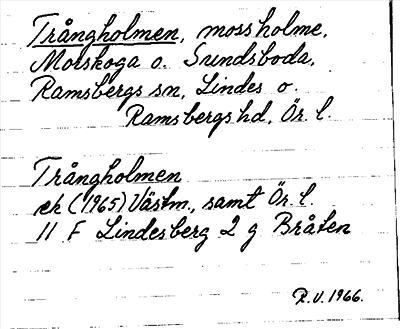 Trångholmen, mossholme,
Morskoga o. Sundsboda,
Ramsbergs sn, Lindes o.
Ramsbergs hd, Ör. l.
Trångholmen
ek (1965) Västm., samt Ör. l.
11 F Lindesberg 2 g Bråten
R.V. 1966.